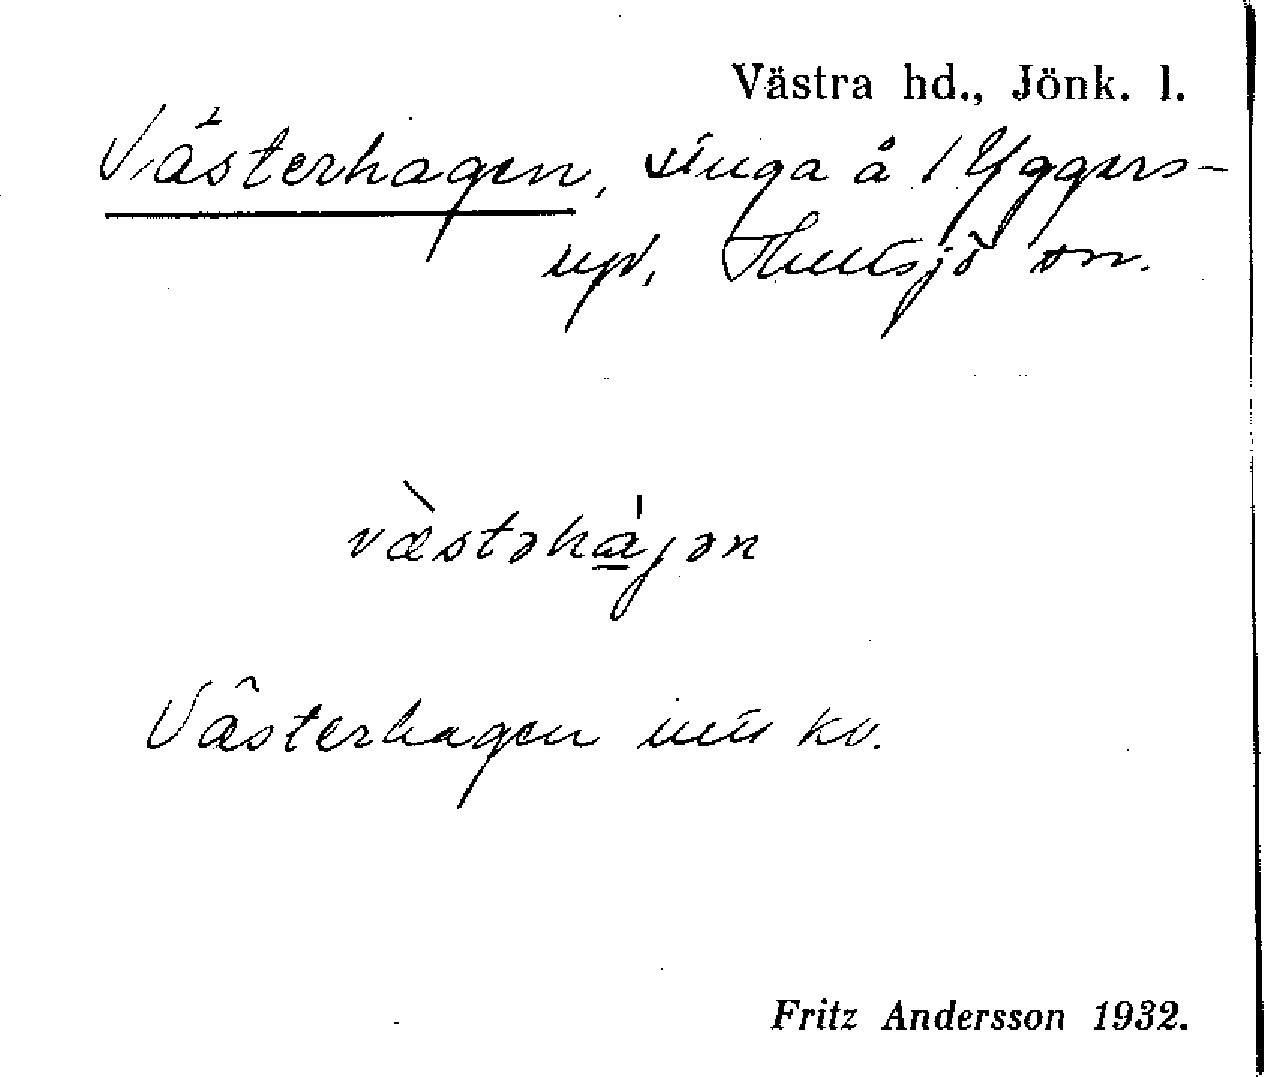 Västra hd., Jönk. l.
Västerhagen, slinga å 1 Yggers-
ryd, Hultsjö sn.
væ̀stəha̲̍jən
Västerhagen utk kv.
Fritz Andersson 1932.